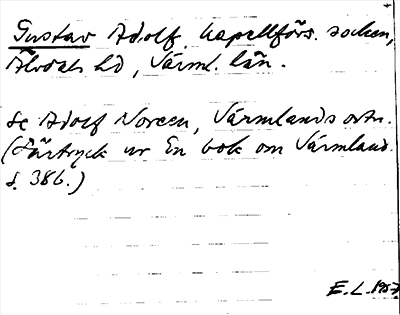 Gustav Adolf kapellförs. socken,
Älvdals hd, Värml. län.
Se Adolf Noreen, Värmlands ortn.
(Särtryck ur En bok om Värmland.
s. 386.)
E.L. 1957